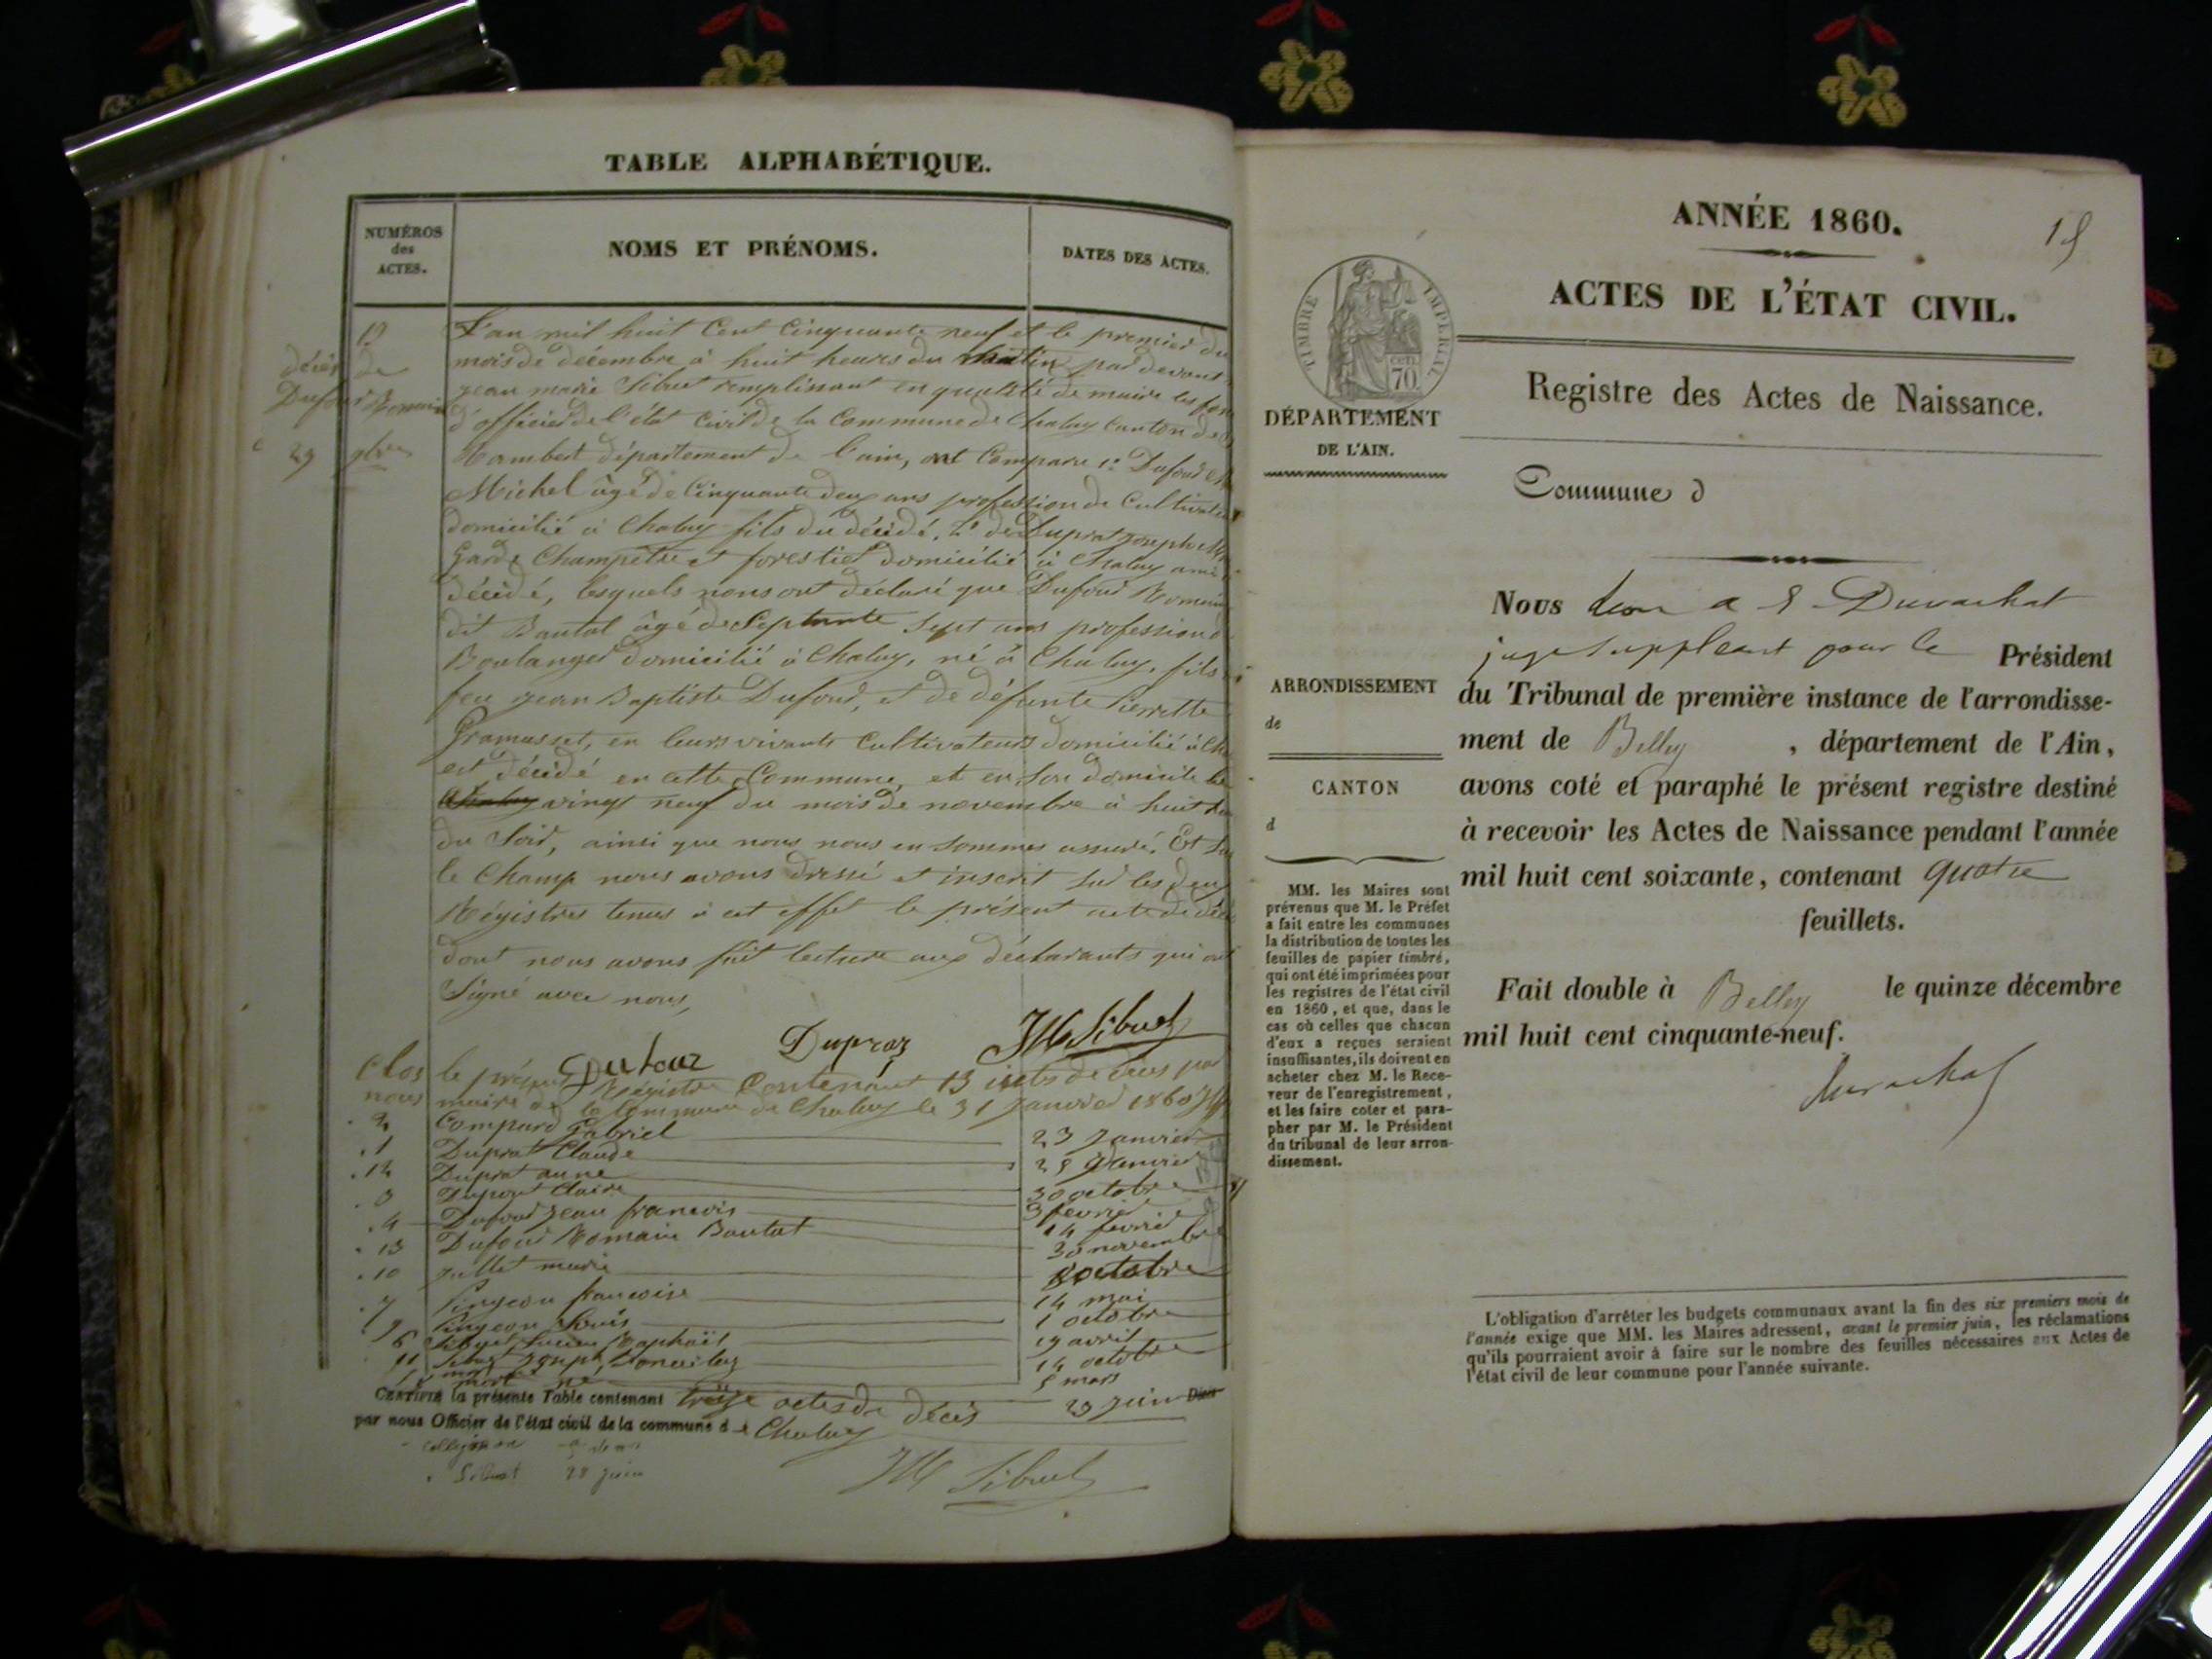 TABLE ALPHABÉTIQUE.
NUMÉROS
des
ACTES.
NOMS ET PRÉNOMS.
DATES DES ACTES.
décès de
Dufour Romain
29 9bre
L'an mil huit Cent Cinquante neuf et le premier du
mois de décembre à huit heures du matin par devant
jean marie Sibuet remplissant en qualité de maire les
d'officier de l'état Civil de la Commune de Chaley Canton de
Rambert département de l'ain, ont Comparu 1° Dufour
Michel âgé de Cinquante deux ans profession de Cultivateur
domicilié à Chaley fils du décédé, 2° Duprat joseph
Garde Champêtre et forestier domicilié à Chaley ami
décédé, lesquels nous ont déclaré que Dufour Romain
dit Bautat âgé de Septante Sept ans profession
Boulanger domicilié à Chaley, né à Chaley, fils
feu jean Baptiste Dufour, et de défunte Pierrette
Gramusset, en leurs vivants Cultivateurs domicilié à
est décédé en cette Commune, et en son domicile le
vingt neuf du mois de novembre à huit
du Soir, ainsi que nous nous en sommes assuré. Et
le Champ nous avons dressé et inscrit sur les deux
Régistres tenus à cet effet le présent acte de
dont nous avons fait lecture aux déclarants qui ont
Signé avec nous,
Dufour Dupraz JM Sibuet
Clos le présent Régistre Contenant 13 actes de décès par
nous maire de la Commune de Chaley le 31 Janvier 1860
2 Compard Gabriel 23 Janvier
1 Duprat Claude
12 Duprat anne 30 octobre
3 Dupont Claire 3 fevrier
4 Dufour jean francois 14 fevrier
13 Dufour Romain Bautat 30 novembre
10 Jullet marie 8 octobre
7 Pingeon francoise 14 mai
9 Pingeon Louis 1 octobre
6 Raphaël 19 avril
11 14 octobre
mort né 5 mars
23 juin
CERTIFIÉ la présente Table contenant treize actes de décès
par nous Officier de l'état civil de la commune de Chaley
Sibuet 28 juin
JM Sibuet
ANNÉE 1860.
ACTES DE L'ÉTAT CIVIL.
TIMBRE IMPERIAL
cen.
70
Registre des Actes de Naissance.
DÉPARTEMENT
DE L'AIN.
Commune d
ARRONDISSEMENT
de
CANTON
d
MM. les Maires sont
prévenus que M. le Préfet
a fait entre les communes
la distribution de toutes les
feuilles de papier timbré,
qui ont été imprimées pour
les registres de l'état civil
en 1860, et que, dans le
cas où celles que chacun
d'eux a reçues seraient
insuffisantes, ils doivent en
acheter chez M. le Rece-
veur de l'enregistrement,
et les faire coter et para-
pher par M. le Président
du tribunal de leur arron-
dissement.
Nous Duvachat
juge suppléant pour le Président
du Tribunal de première instance de l'arrondisse-
ment de Belley, département de l'Ain,
avons coté et paraphé le présent registre destiné
à recevoir les Actes de Naissance pendant l'année
mil huit cent soixante, contenant quatre
feuillets.
Fait double à Belley le quinze décembre
mil huit cent cinquante-neuf.
Duvachat
L'obligation d'arrêter les budgets communaux avant la fin des six premiers mois de
l'année exige que MM. les Maires adressent, avant le premier juin, les réclamations
qu'ils pourraient avoir à faire sur le nombre des feuilles nécessaires aux Actes de
l'état civil de leur commune pour l'année suivante.